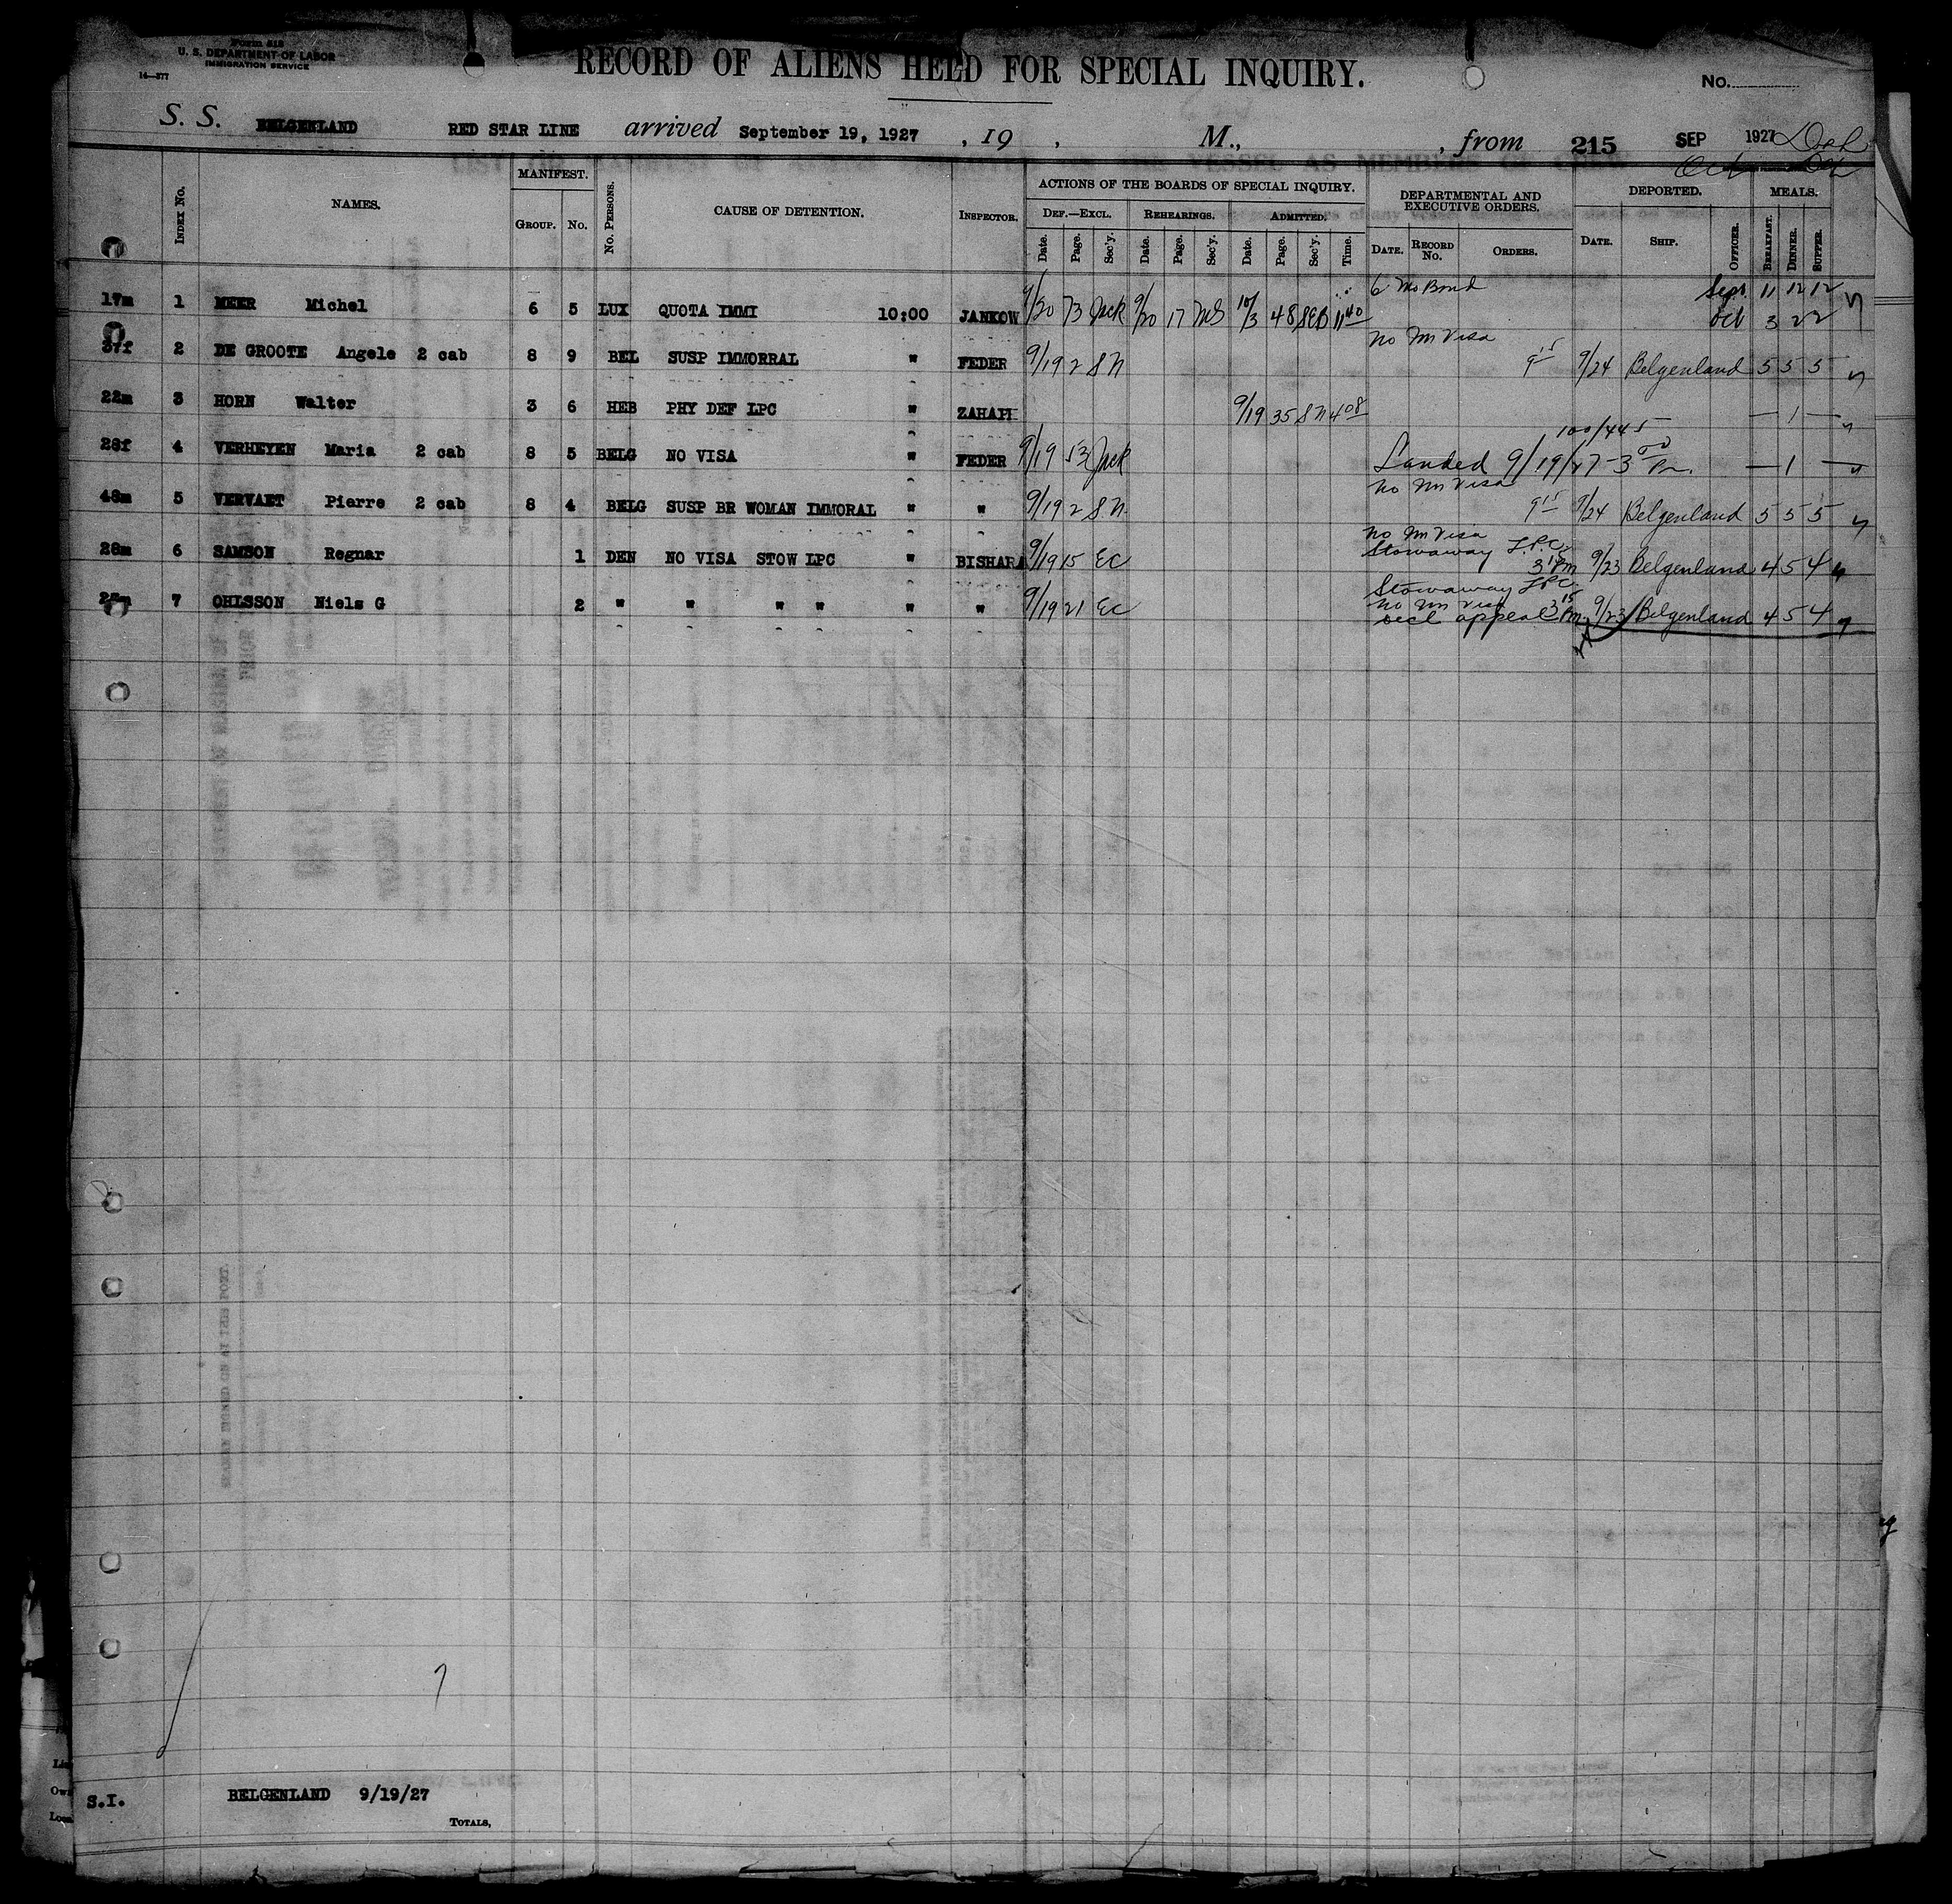 Form 518
U. S. DEPARTMENT OF LABOR
IMMIGRATION SERVICE
14—377
RECORD OF ALIENS HELD FOR SPECIAL INQUIRY.
No.
S. S. BELGENLAND RED STAR LINE arrived September 19, 1927 , 19 , M., , from 215 SEP 1927
Oct
Index No. NAMES. MANIFEST. Group. No. No. Persons. CAUSE OF DETENTION. Inspector. ACTIONS OF THE BOARDS OF SPECIAL INQUIRY. DEPARTMENTAL AND EXECUTIVE ORDERS. DEPORTED. MEALS.
Def.—Excl. Rehearings. Admitted.
Date. Page. Sec'y. Date. Page. Sec'y. Date. Page. Sec'y. Time. Date. Record No. Orders. Date. Ship. Officer. Breakfast. Dinner. Supper.
6 Mo Bond Sept 11 12 12
17m 1 MEER Michel 6 5 LUX QUOTA IMMI 10:00 JANKOW 9/20 73 Jack 9/20 17 10/3 48 SEB 11 40 Oct 3 2 2
No Im Visa
37f 2 DE GROOTE Angele 2 cab 8 9 BEL SUSP IMMORRAL " FEDER 9/19 2 S N 9 15 9/24 Belgenland 5 5 5
22m 3 HORN Walter 3 6 HEB PHY DEF LPC " 9/19 35 S N 4 08 — 1 —
100/445
28f 4 VERHEYEN Maria 2 cab 8 5 BELG NO VISA " FEDER 9/19 53 Jack Landed 9/19/27 - 3 00 Pm. — 1 —
No Im Visa
48m 5 VERVAET Pierre 2 cab 8 4 BELG SUSP BR WOMAN IMMORAL " " 9/19 2 S N 9 15 9/24 Belgenland 5 5 5
No Im Visa
Stowaway L.P.C.
28m 6 SAMSON Regnar 1 DEN NO VISA STOW LPC " BISHARA 9/19 15 EC 3 15 Pm 9/23 Belgenland 4 5 4
Stowaway LPC.
No Im Visa
7 OHLSSON Niels G 2 " " " " " " 9/19 21 EC Decl appeal 3 15 Pm. 9/23 Belgenland 4 5 4
7
S.I. BELGENLAND 9/19/27
Totals,